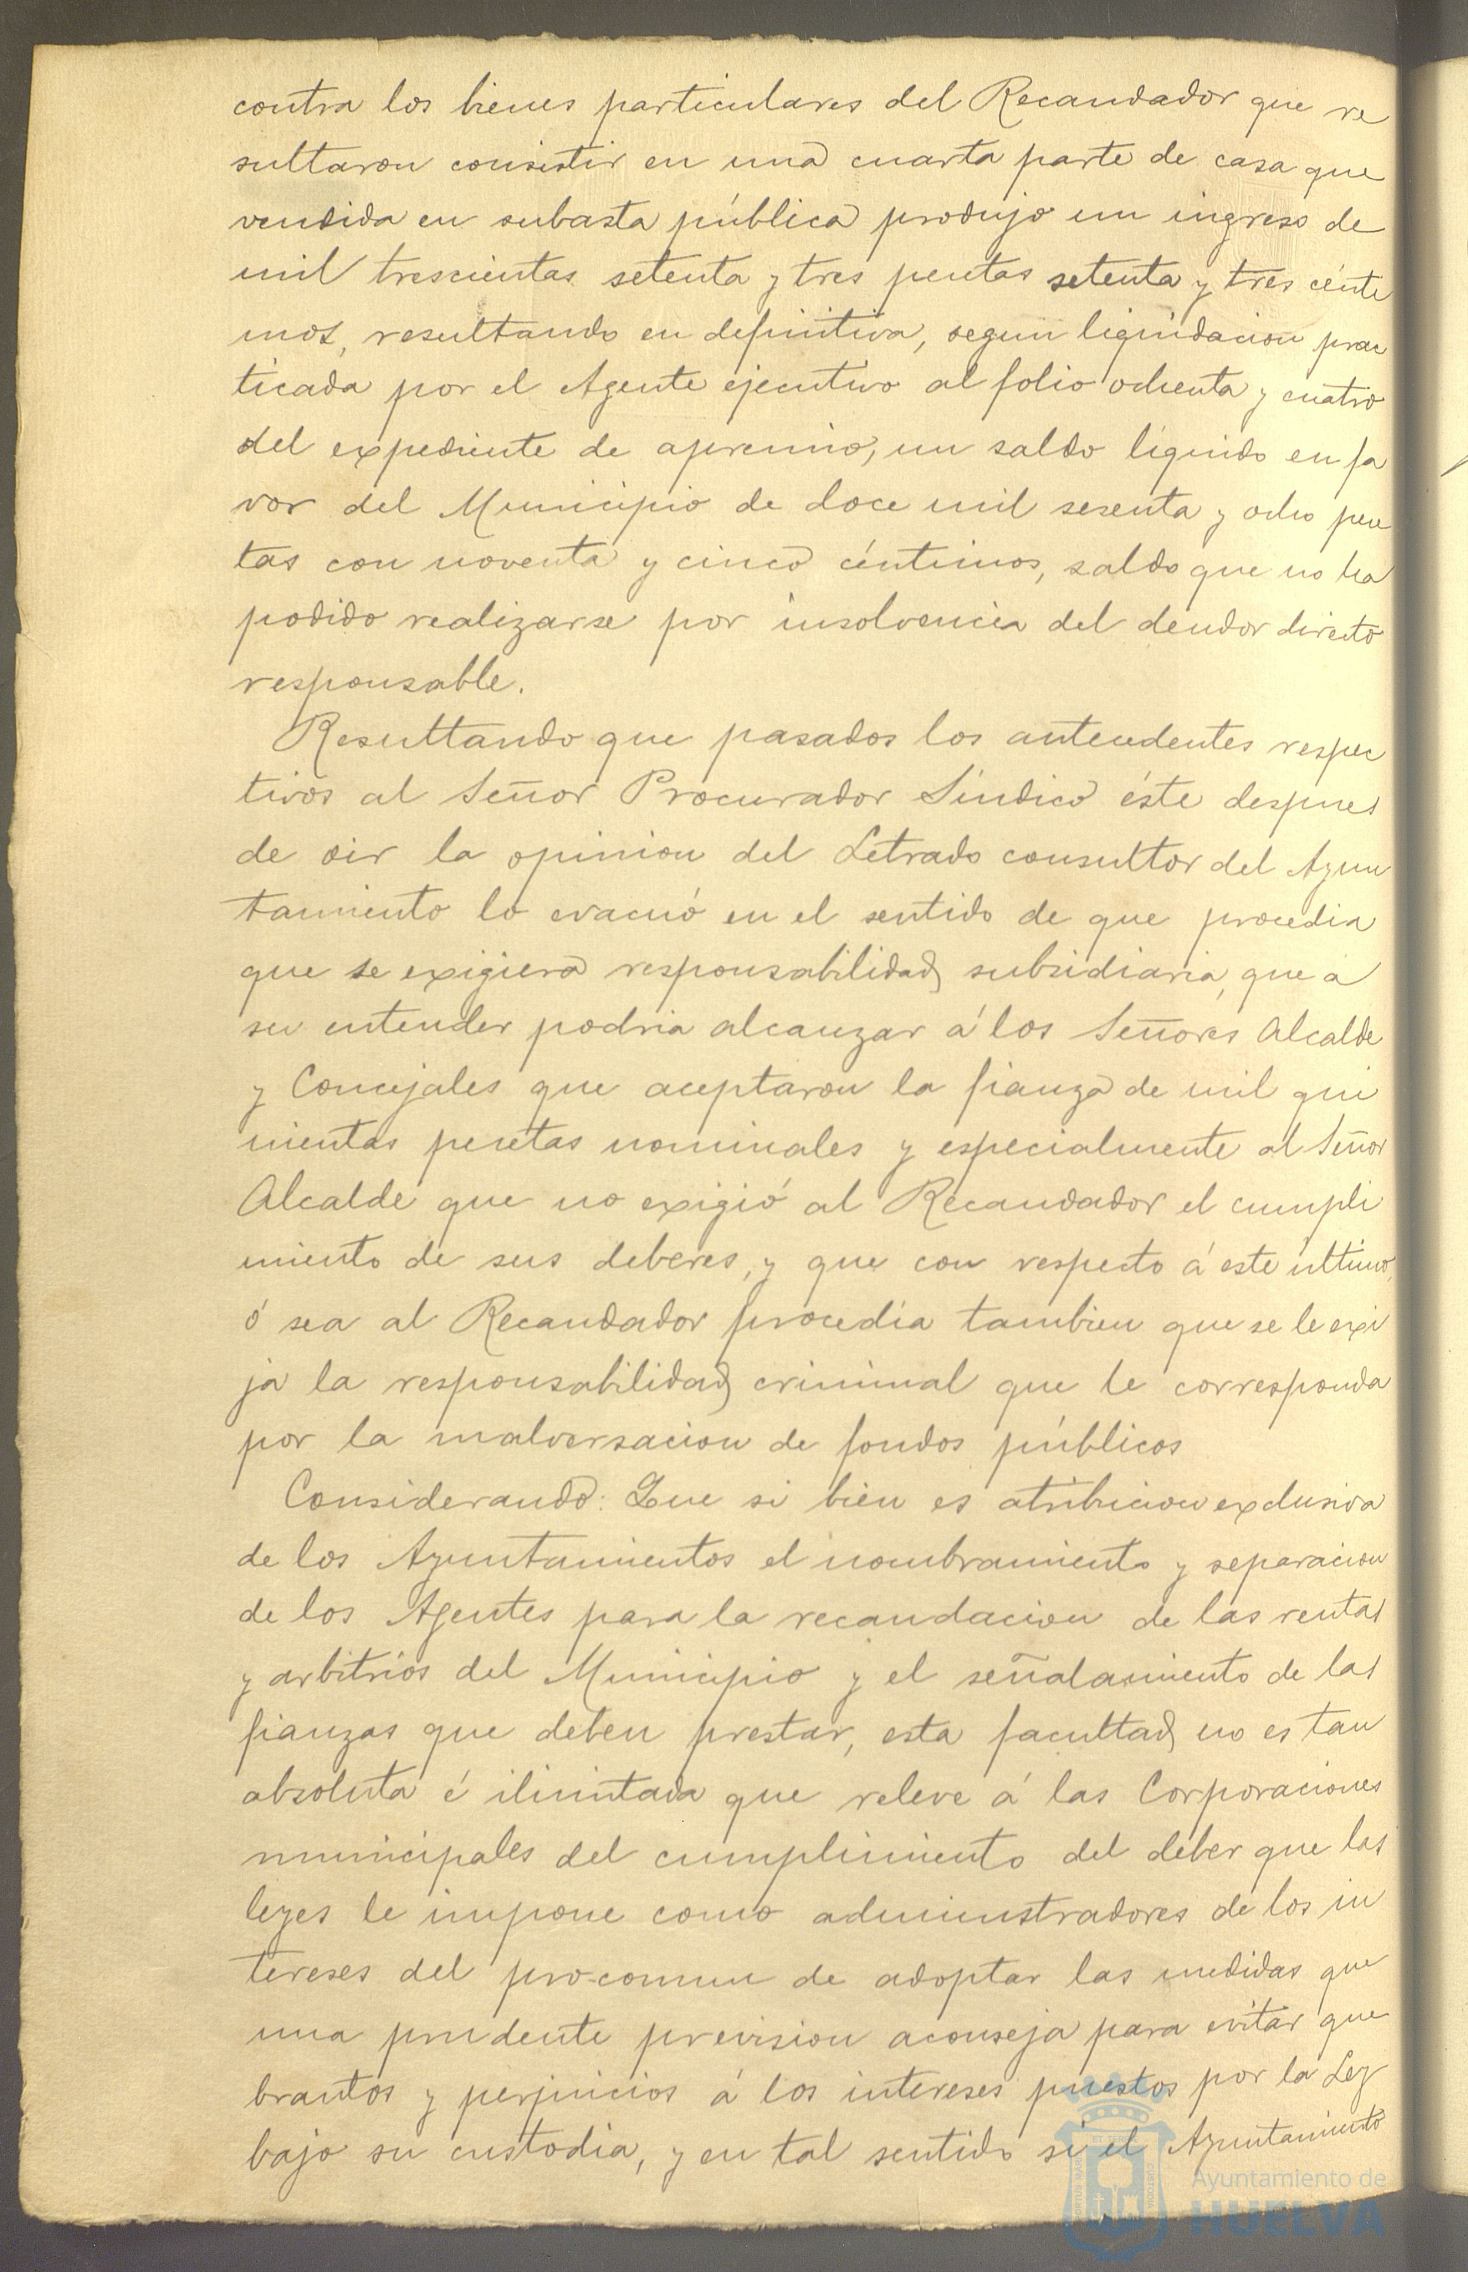 contra los bienes particulares del Recaudador que re
sultaron consistir en una cuarta parte de casa que
vendida en subasta pública produjo un ingreso de
mil trescientas setenta y tres pesetas setenta y tres cénti
mos, resultando en definitiva, segun liquidacion prac
ticada por el Agente ejecutivo al folio ochenta y cuatro
del expediente de apremio, un saldo líquido en fa
vor del Municipio de doce mil sesenta y ocho pese
tas con noventa y cinco céntimos, saldo que no ha
podido realizarse por insolvencia del deudor directo
responsable.
Resultando que pasados los antecedentes respec
tivos al Señor Procurador Síndico éste despues
de oir la opinion del Letrado consultor del Ayun
tamiento lo evacuó en el sentido de que procedia
que se exigiera responsabilidad subsidiaria, que á
su entender podria alcanzar á los Señores Alcalde
y Concejales que aceptaron la fianza de mil qui
nientas pesetas nominales y especialmente al Señor
Alcalde que no exigió al Recaudador el cumpli
miento de sus deberes, y que con respecto á este último,
ó sea al Recaudador procedía tambien que se le exi
ja la responsabilidad criminal que le corresponda
por la malversacion de fondos públicos
Considerando: Que si bien es atribucion exclusiva
de los Ayuntamientos el nombramiento y separacion
de los Agentes para la recaudacion de las rentas
y arbitrios del Municipio y el señalamiento de las
fianzas que deben prestar, esta facultad no es tan
absoluta é ilimitada que releve á las Corporaciones
municipales del cumplimiento del deber que las
leyes le impone como administradores de los in
tereses del pro-comun de adoptar las medidas que
una prudente prevision aconseja para evitar que
brantos y perjuicios á los intereses puestos por la Ley
bajo su custodia, y en tal sentido si el Ayuntamiento
Ayuntamiento de
HUELVA